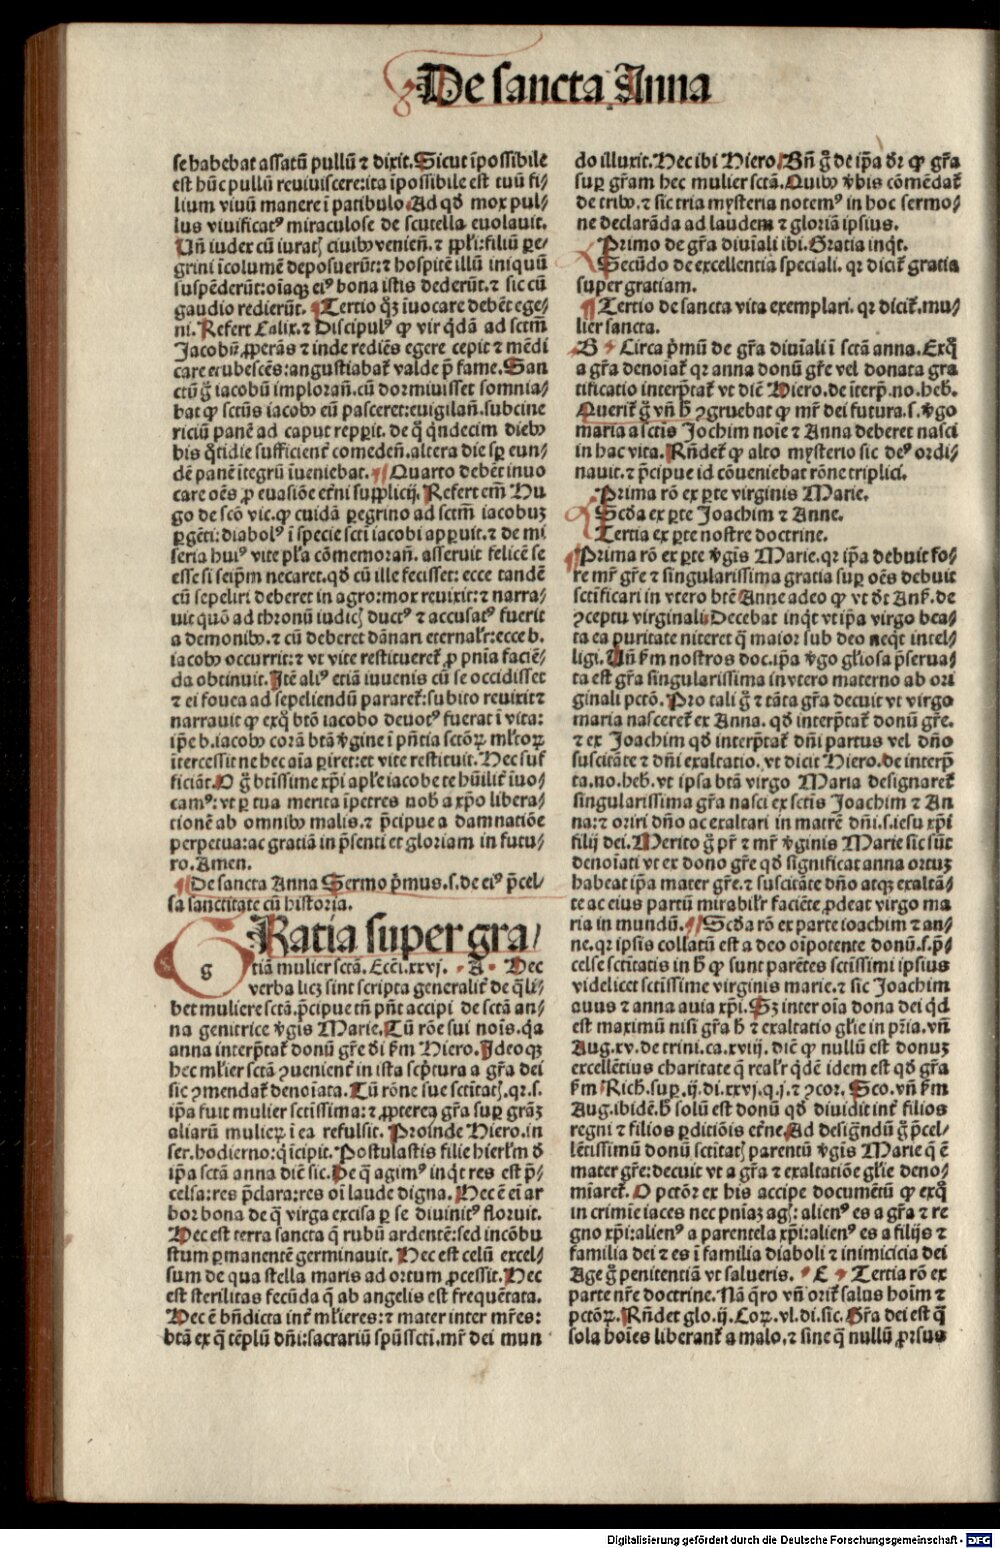 De sancta Anna
se habebat assatū pullū ⁊ dixit. Sicut īpossibile
est hūc pullū reuiuiscere: ita īpossibile est tuū fi⸗
lium viuū manere ī patibulo. Ad qđ mox pul⸗
lus viuificatꝰ miraculose de scutella euolauit.
Vn̄ iudex cū iuratꝭ ciuibꝫ venien̄. ⁊ ꝓpl̄i: filiū ꝑe⸗
grini īcolumē deposuerūt: ⁊ hospitē illū iniquū
suspēderūt: oīaqꝫ eiꝰ bona istis dederūt. ⁊ sic cū
gaudio redierūt. ¶ Tertio qꝫ īuocare debēt ege⸗
ni. Refert Calix. ⁊ Discipulꝰ ꝙ vir qdā ad sctm̄
Jacobū ꝓperās ⁊ inde rediēs egere cepit ⁊ mēdi
care erubescēs: angustiabat᷑ valde p̄ fame. San
ctū g̊ iacobū imploran̄. cū dormiuisset somnia⸗
bat ꝙ sctūs iacobꝫ eū pasceret: euigilan̄. subcine
riciū panē ad caput repperit. de q̄ qndecim diebꝫ
bis q̄tidie sufficient᷑ comeden̄. altera die sꝑ eun⸗
dē panē ītegrū īueniebat. ¶ Quarto debēt inuo
care oēs ꝓ euasiōe et̄ni supplicij. Refert em̄ Hu
go de scō vic. ꝙ cuidā ꝑegrino ad sctm̄ iacobuꝫ
ꝑgēti: diabolꝰ ī specie scti iacobi apꝑuit. ⁊ de mi
seria huiꝰ vite pl̄a cōmemoran̄. asseruit felicē se
esse si seip̄m necaret. qđ cū ille fecisset: ecce tandē
cū sepeliri deberet in agro: mox reuixit: ⁊ narra⸗
uit quō ad thronū iudicꝭ ductꝰ ⁊ accusatꝰ fuerit
a demonibꝫ. ⁊ cū deberet dānari eternal̄r: ecce b.
iacobꝫ occurrit: ⁊ vt vite restitueret᷑ ꝓ pn̄ia faciē⸗
da obtinuit. Itē aliꝰ etiā iuuenis cū se occidisset
⁊ ei fouea ad sepeliendū pararet᷑: subito reuixit ⁊
narrauit ꝙ exq̄ btō iacobo deuotꝰ fuerat ī vita:
ip̄e b. iacobꝫ corā btā v̄gine ī pn̄tia sctōꝝ ml̄toꝝ
ītercessit ne hec aīa ꝑiret: et vite restituit. Hec suf
ficiāt. O g̊ btissime xp̄i apl̄e iacobe te hūilit᷑ īuo⸗
camꝰ: vt ꝑ tua merita īpetres nob̄ a xp̄o libera⸗
tionē ab omnibꝫ malis. ⁊ p̄cipue a damnatiōe
perpetua: ac gratiā in p̄senti et gloriam in futu⸗
ro. Amen.
¶ De sancta Anna Sermo p̄mus. s. de eiꝰ p̄cel⸗
sa sanctitate cū historia.
g
GRatia super gra⸗
tiā mulier sctā. Ecc̄i. xxvj. A Hec
verba licꝫ sint scripta generalit᷑ de q̄li⸗
bet muliere sctā. p̄cipue tn̄ pn̄t accipi de sctā an⸗
na genitrice v̄gis Marie. Tū rōe sui noīs. qa
anna interp̄tat᷑ donū gr̄e ꝸi ẜm Hiero. Ideoqꝫ
hec ml̄ier sctā ꝯuenient᷑ in ista scp̄tura a gr̄a dei
sic ꝯmendat᷑ denoīata. Tū rōne sue sctitatꝭ. qr. s.
ip̄a fuit mulier sctissima: ⁊ ꝓpterea gr̄a suꝑ grāꝫ
aliarū mulieꝝ ī ea refulsit. Proinde Hiero. in
ser. hodierno: q̄ īcipit. Postulastis filie hierl̄m ꝸ
ip̄a sctā anna diē sic. De q̄ agimꝰ inqt res est p̄⸗
celsa: res p̄clara: res oī laude digna. Hec ē eī ar
bor bona de q̄ virga excisa ꝑ se diuinitꝰ floruit.
Hec est terra sancta q̄ rubū ardentē: sed incōbu
stum ꝑmanentē germinauit. Hec est celū excel⸗
sum de qua stella maris ad ortum ꝓcessit. Hec
est sterilitas fecūda q̄ ab angelis est frequētata.
Hec ē bn̄dicta int᷑ ml̄ieres: ⁊ mater inter mr̄es:
btā ex q̄ tēplū dn̄i: sacrariū spūssctī. mr̄ dei mun
do illuxit. Hec ibi Hiero. Bn̄ g̊ de ip̄a ꝸr ꝙ gr̄a
suꝑ gr̄am hec mulier sctā. Quibꝫ v̄bis cōmēdat᷑
de tribꝫ. ⁊ sic tria mysteria notemꝰ in hoc sermo⸗
ne declarāda ad laudem ⁊ gloriā ipsius.
Primo de gr̄a diuīali ibi. Gratia inqt.
Secūdo de excellentia speciali. qr dicit᷑ gratia
super gratiam.
¶ Tertio de sancta vita exemplari. qr dicit᷑. mu⸗
lier sancta.
B Circa p̄mū de gr̄a diuīali ī sctā anna. Exq̄
a gr̄a denoīat᷑ qr anna donū gr̄e vel donata gra
tificatio interp̄tat᷑ vt diē Hiero. de īterp̄. no. heb.
Querit᷑ g̊ vn̄ h̄ ꝯgruebat ꝙ mr̄ dei futura. s. v̄go
maria a sctis Jochim noīe ⁊ Anna deberet nasci
in hac vita. Rn̄det᷑ ꝙ alto mysterio sic deꝰ ordi⸗
nauit. ⁊ p̄cipue id cōueniebat rōne triplici.
Prima rō ex ꝑte virginis Marie.
Scđa ex ꝑte Joachim ⁊ Anne.
Tertia ex ꝑte nostre doctrine.
¶ Prima rō ex ꝑte v̄gīs Marie. qr ip̄a debuit fo⸗
re mr̄ gr̄e ⁊ singularissima gratia suꝑ oēs debuit
sctificari in vtero btē Anne adeo ꝙ vt ꝸt Ans̄. de
ꝯceptu virginali. Decebat inqt vt ip̄a virgo bea⸗
ta ea puritate niteret q̄ maior sub deo neqt intel⸗
ligi. Vn̄ ẜm nostros doc. ip̄a v̄go gl̄iosa p̄serua⸗
ta est gr̄a singularissima in vtero materno ab ori
ginali pctō. Pro tali g̊ ⁊ tāta gr̄a decuit vt virgo
maria nasceret᷑ ex Anna. qđ interp̄tat᷑ donū gr̄e.
⁊ ex Joachim qđ interp̄tat᷑ dn̄i partus vel dn̄o
suscitāte ⁊ dn̄i exaltatio. vt dicit Hiero. de interp̄
ta. no. heb. vt ipsa btā virgo Maria designaret᷑
singularissima gr̄a nasci ex sctīs Joachim ⁊ An
na: ⁊ oriri dn̄o ac exaltari in matrē dn̄i. s. iesu xp̄i
filij dei. Merito g̊ pr̄ ⁊ mr̄ v̄ginis Marie sic sūt
denoīati vt ex dono gr̄e qđ significat anna ortuꝫ
habeat ip̄a mater gr̄e. ⁊ suscitāte dn̄o atqꝫ exaltā⸗
te ac eius partū mirabil̄r faciēte ꝓdeat virgo ma
ria in mundū. ¶ Scđa rō ex parte ioachim ⁊ an⸗
ne. qr ipsis collatū est a deo oīpotente donū. s. p̄⸗
celse sctitatis in h̄ ꝙ sunt parētes sctissimi ipsius
videlicet sctissime virginis marie. ⁊ sic Joachim
auus ⁊ anna auia xp̄i. Sꝫ inter oīa dona dei qd
est maximū nisi gr̄a h̄ ⁊ exaltatio gl̄ie in pr̄ia. vn̄
Aug. xv. de trini. ca. xviij. diē ꝙ nullū est donuꝫ
excellētius charitate q̄ real̄r qdē idem est qđ gr̄a
ẜm Rich. suꝑ. ij. di. xxvj. q. j. ⁊ ꝯcor. Sco. vn̄ ẜm
Aug. ibidē. h̄ solū est donū qđ diuidit int᷑ filios
regni ⁊ filios ꝑditiōis et̄ne. Ad designdū g̊ p̄cel⸗
lētissimū donū sctitatꝭ parentū v̄gis Marie q̄ ē
mater gr̄e: decuit vt a gr̄a ⁊ exaltatiōe gl̄ie deno⸗
mīaret᷑. O pctōr ex his accipe documētū ꝙ exq̄
in crimīe iaces nec pn̄iaꝫ agꝭ: alienꝰ es a gr̄a ⁊ re
gno xp̄i: alienꝰ a parentela xp̄i: alienꝰ es a filijs ⁊
familia dei ⁊ es ī familia diaboli ⁊ inimicicia dei
Age g̊ penitentiā vt salueris. C Tertia rō ex
parte nr̄e doctrine. Nā qro vn̄ orit᷑ salus hoīm ⁊
pctōꝝ. Rn̄det glo. ij. Coꝝ. vl. di. sic. Gr̄a dei est q̄
sola hoīes liberant᷑ a malo. ⁊ sine q̄ nullū ꝓrsus
Digitalisierung gefördert durch die Deutsche Forschungsgemeinschaft - DFG